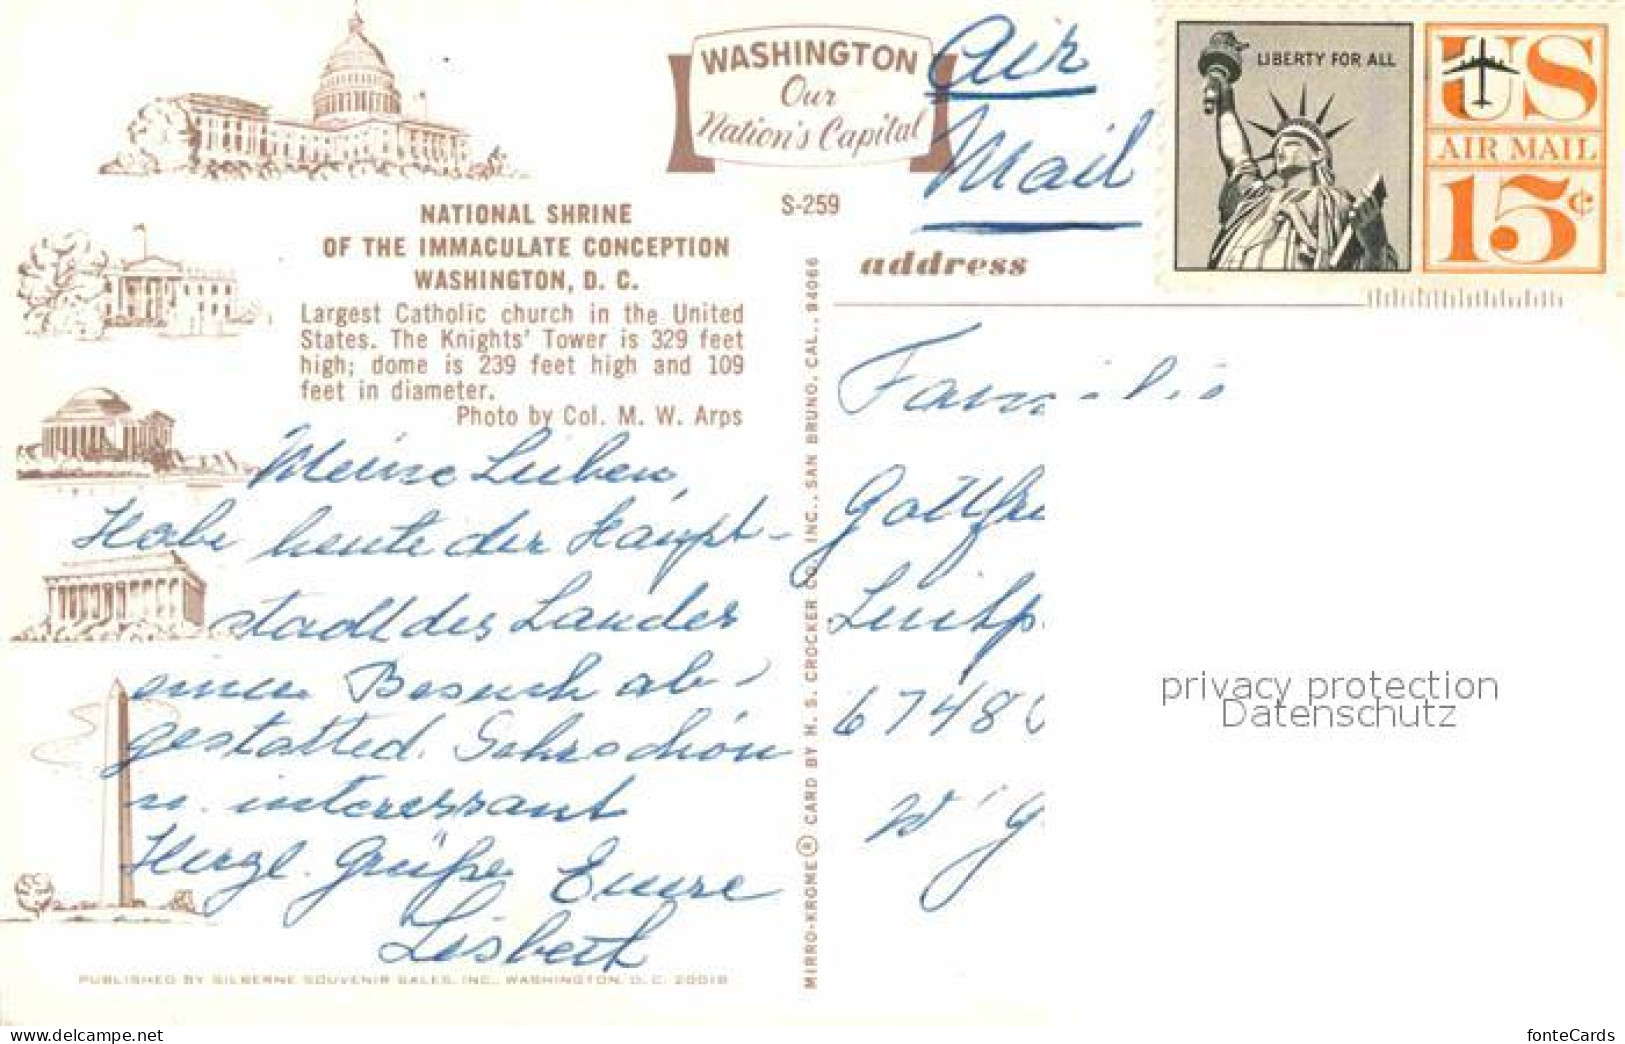 WASHINGTON
Our
Nation's Capital
Air
Mail
LIBERTY FOR ALL
US
AIR MAIL
15¢
S-259
NATIONAL SHRINE
OF THE IMMACULATE CONCEPTION
WASHINGTON, D. C.
Largest Catholic church in the United
States. The Knights' Tower is 329 feet
high; dome is 239 feet high and 109
feet in diameter.
Photo by Col. M. W. Arps
Meine Lieben,
Habe heute der Haupt-
stadt des Landes
einen Besuch ab-
gestatted. Sehr schön
u. interessant
Herzl. Grüße Eure
Lisbeth
PUBLISHED BY SILBERNE SOUVENIR SALES, INC., WASHINGTON, D. C. 20018
MIRRO-KROME ® CARD BY H. S. CROCKER CO. INC., SAN BRUNO, CAL., 94066
address
Familie
67480
privacy protection
Datenschutz
www.delcampe.net
fonteCards